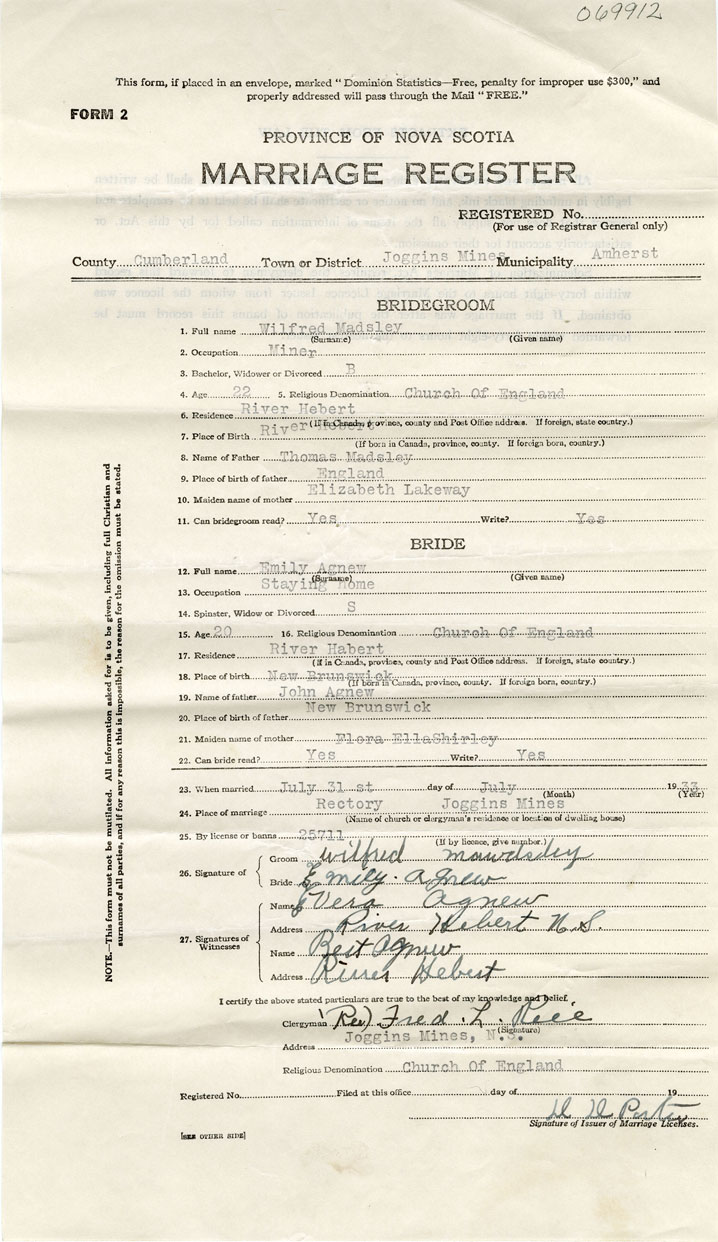 069912
This form, if placed in an envelope, marked "Dominion Statistics—Free, penalty for improper use $300," and
properly addressed will pass through the Mail "FREE."
FORM 2
PROVINCE OF NOVA SCOTIA
MARRIAGE REGISTER
REGISTERED No.
(For use of Registrar General only)
County Cumberland Town or District Joggins Mines Municipality Amherst
BRIDEGROOM
1. Full name Wilfred Madsley
(Surname) (Given name)
2. Occupation Miner
3. Bachelor, Widower or Divorced B
4. Age 22 5. Religious Denomination Church Of England
6. Residence River Hebert
(If in Canada, province, county and Post Office address. If foreign, state country.)
7. Place of Birth River Hebert
(If born in Canada, province, county. If foreign born, country.)
8. Name of Father Thomas Madsley
9. Place of birth of father England
10. Maiden name of mother Elizabeth Lakeway
11. Can bridegroom read? Yes Write? Yes
BRIDE
12. Full name Emily Agnew
(Surname) (Given name)
13. Occupation Staying Home
14. Spinster, Widow or Divorced S
15. Age 20 16. Religious Denomination Church Of England
17. Residence River Habert
(If in Canada, province, county and Post Office address. If foreign, state country.)
18. Place of birth New Brunswick
(If born in Canada, province, county. If foreign born, country.)
19. Name of father John Agnew
20. Place of birth of father New Brunswick
21. Maiden name of mother Flora EllaShirley
22. Can bride read? Yes Write? Yes
23. When married July 31 st day of July 1933
(Month) (Year)
24. Place of marriage Rectory Joggins Mines
(Name of church or clergyman's residence or location of dwelling house)
25. By license or banns 25711
(If by licence, give number.)
26. Signature of
Groom Wilfred Mawdsley
Bride Emily. Agnew
27. Signatures of Witnesses
Name Vera Agnew
Address River Hebert N.S.
Name Bert Agnew
Address River Hebert
I certify the above stated particulars are true to the best of my knowledge and belief.
Clergyman (Rev) Fred. L. Rice
(Signature)
Address Joggins Mines, N.S.
Religious Denomination Church Of England
Registered No. Filed at this office day of 19
D D Porter
Signature of Issuer of Marriage Licenses.
[SEE OTHER SIDE]
NOTE.—This form must not be mutilated. All information asked for is to be given, including full Christian and
surnames of all parties, and if for any reason this is impossible, the reason for the omission must be stated.